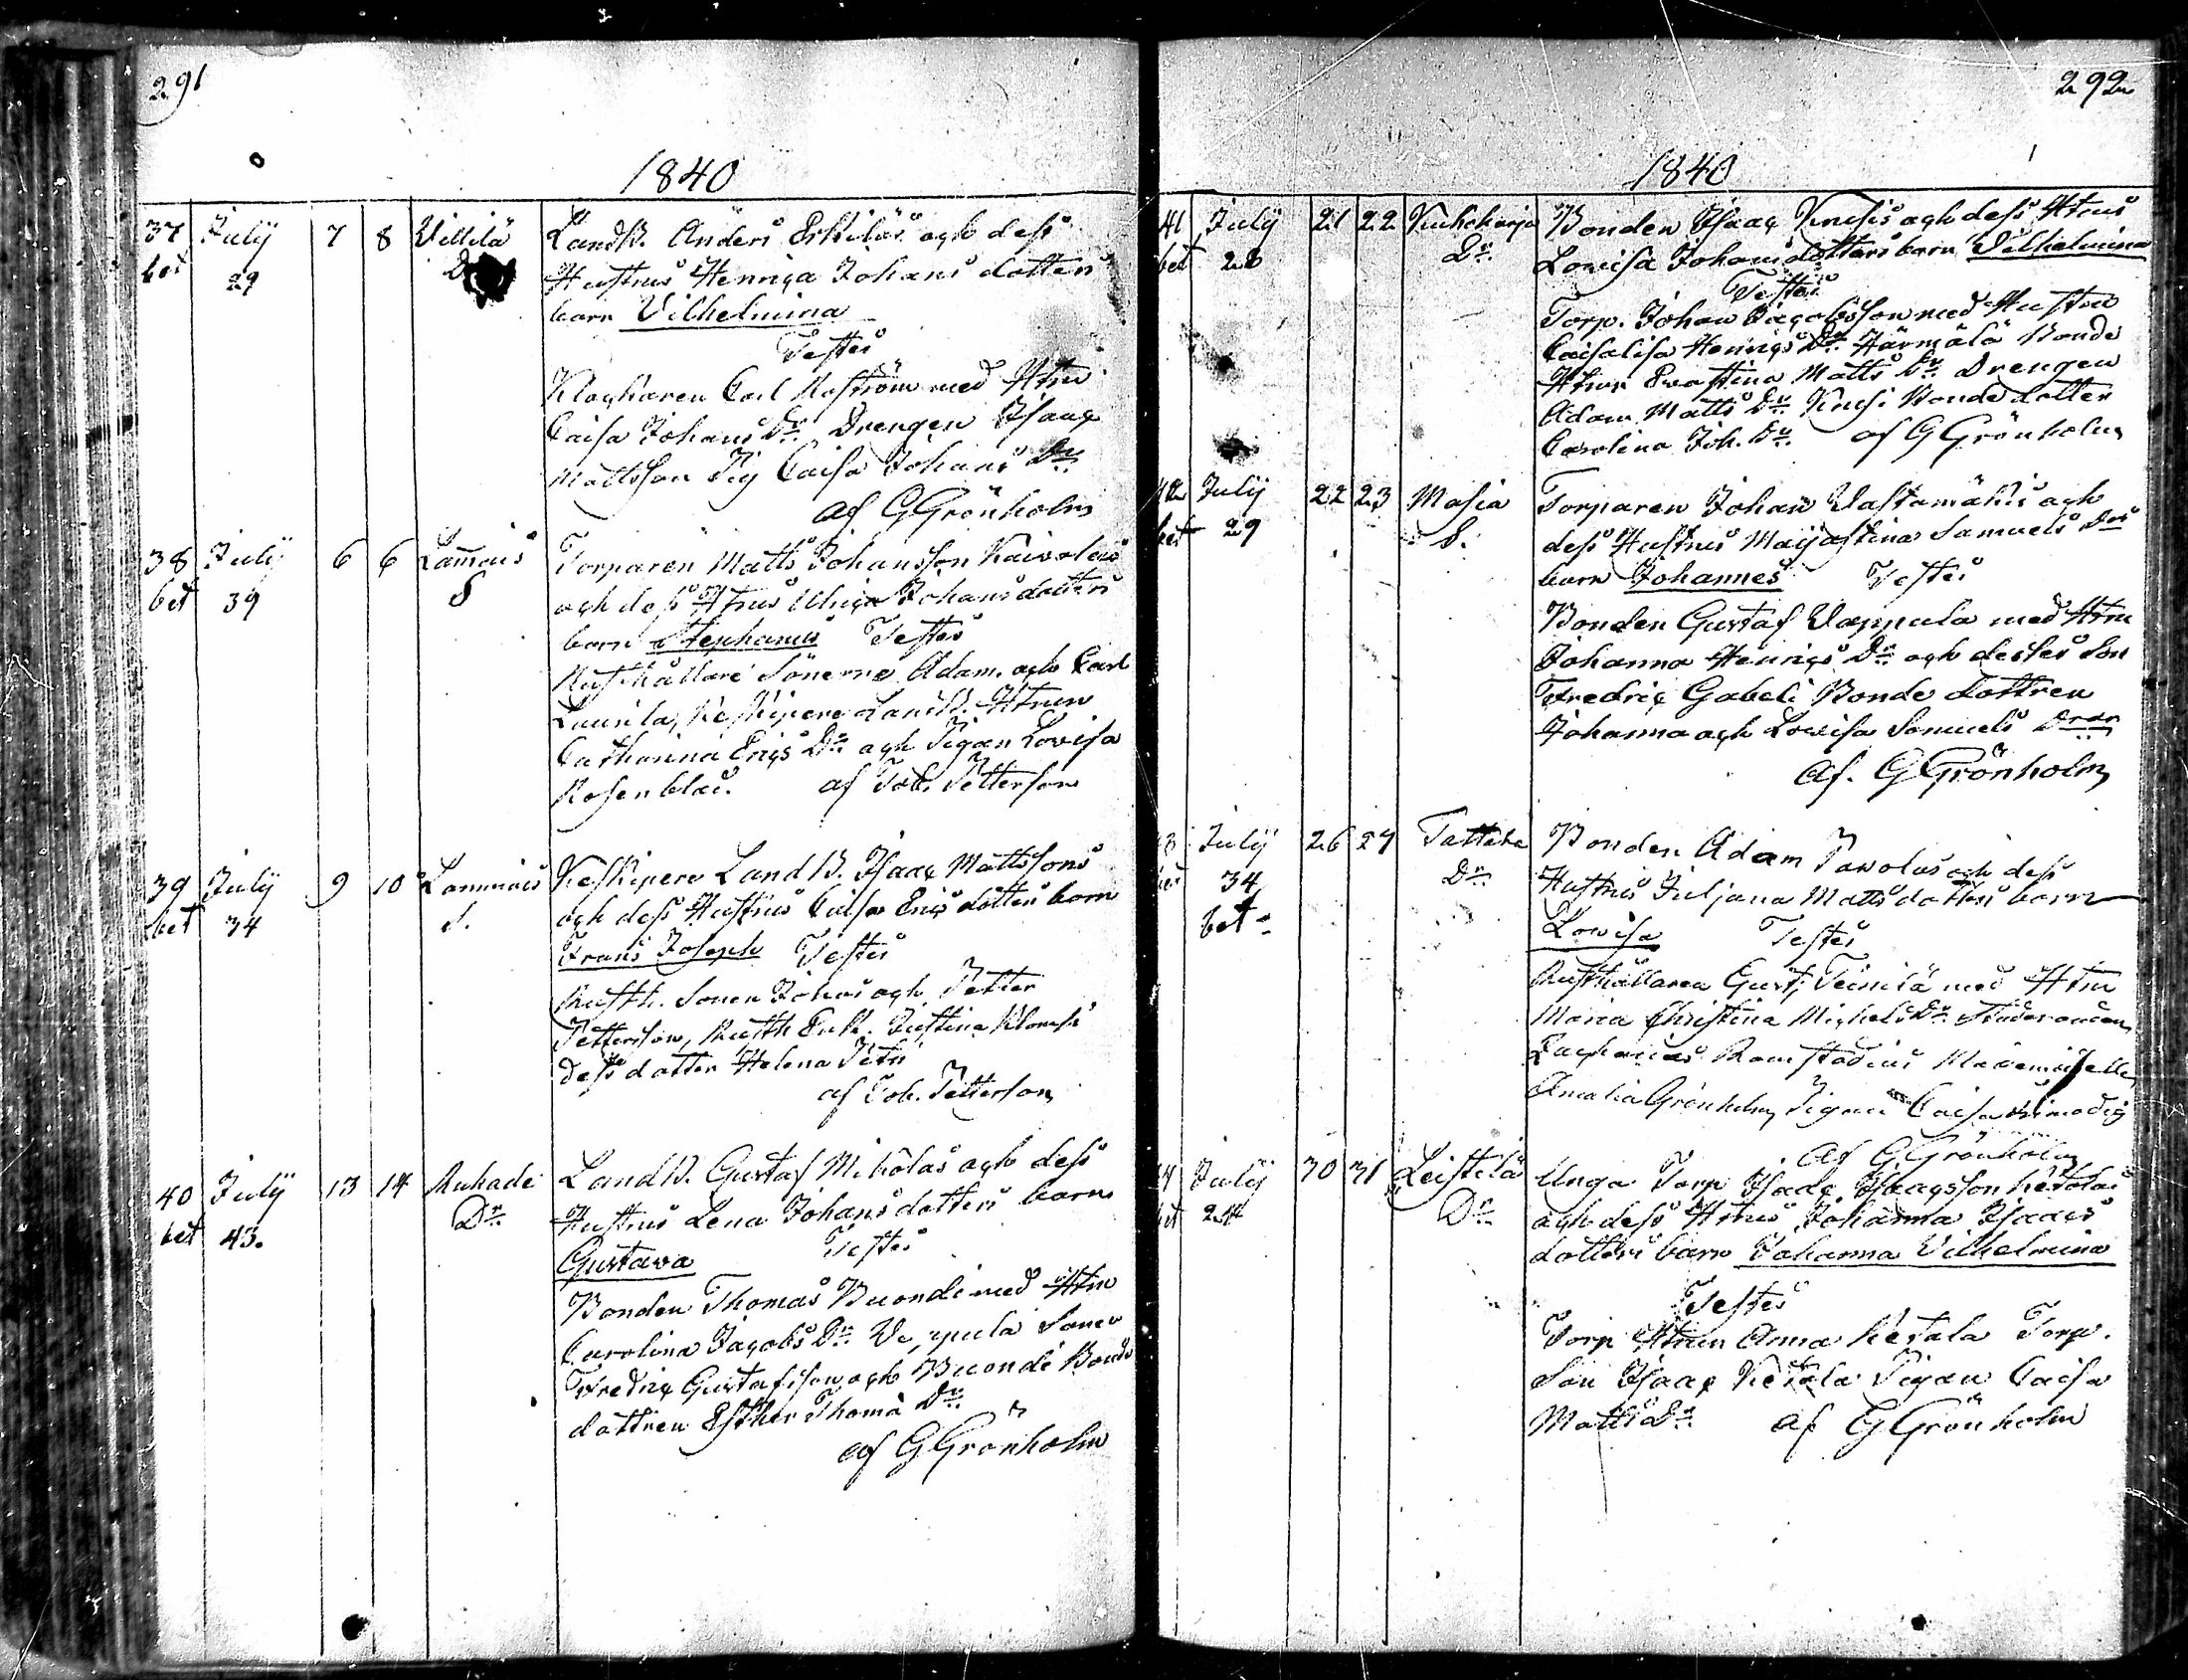 291
1840
37 July 7 8 Villilä LandB. Anders Erkilas och dess
bet 29 Hustrus Henrica Johans dotters
barn Vilhelmina
Testes
Klockaren Carl Roström med Htru
Caisa Johans Dr. Drengen Isaac
Mattsson Pig Caisa Johans Dr.
af G Grönholm
38 July 6 6 Lammais Torparen Matts Johansson Kaivolas
bet 39 S och dess Htrus Ulrica Johans dotters
barn Stephanus Testes
Rusthållare Sönerne Adam och Carl
Laurila, LandB. Htrun
Catharina Erics Dr. och Pigan Lovisa
Rosenblad. af Joh. Petterson
39 July 9 10 Lammais Keskipere LandB. Isaac Mattssons
bet 34 S. och dess Hustrus Caisa Erics dotters barn
Frans Joseph Testes
Rusth. Sonen Johan och Petter
Petterson, Rusth Enk. Justina
dess dotter Helena
af Joh. Petterson
40 July 13 14 Ruhade LandB. Gustaf Mikolas och dess
bet 43. Dr. Hustrus Lena Johans dotters barn
Gustava Testes
Bonden Thomas Buondi med Htru
Carolina Jacobs Dr. Sonen
Fredric Gustafsson och Buondi Bonde
dottren Esther Thoma Dr.
af G Grönholm
292
1840
41 July 21 22 Bonden Isaac Knusis och dess Htrus
bet 28 Dr. Lovisa Johans dotters barn Vilhelmina
Testes
Torp. Johan Jacobsson med Hustru
Caisalisa Henrics Dr. Härmälä Bonde
Htrun Evastina Matts Dr. Drengen
Adam Matts Dr. Knusi Bonde dotter
Carolina Joh. Dr. af G Grönholm
42 July 22 23 Masia Torparen Johan Vastamäkis och
bet 29 S. dess Hustrus Maijastina Samuels Drs
barn Johannes Testes
Bonden Gustaf Vappula med Htru
Johanna Henrics Dr. och desses Son
Fredric Gabeli Bonde dottren
Johanna och Lovisa Samuels Drar
Af. G Grönholm
43 July 26 27 Tattara Bonden Adam Pavolas och dess
bet 34 Dr. Hustrus Juljana Matts dotters barn
bet Lovisa Testes
Rusthållaren Gust. med Htru
Maria Christina Michels Dr. Studeranden
Zacharias Ramstadius Mademoiselle
Amalia Grönholm, Pigan Caisa
Af G Grönholm
44 July 30 31 Leistilä Unga Torp Isaac Isacsson Ketolas
bet 24 Dr. och dess Htrus Johanna Isaacs
dotters barn Johanna Vilhelmina
Testes
Torp Htrun Anna Ketala Torp.
Son Isaac Ketala Pigan Caisa
Matts Dr. af G Grönholm